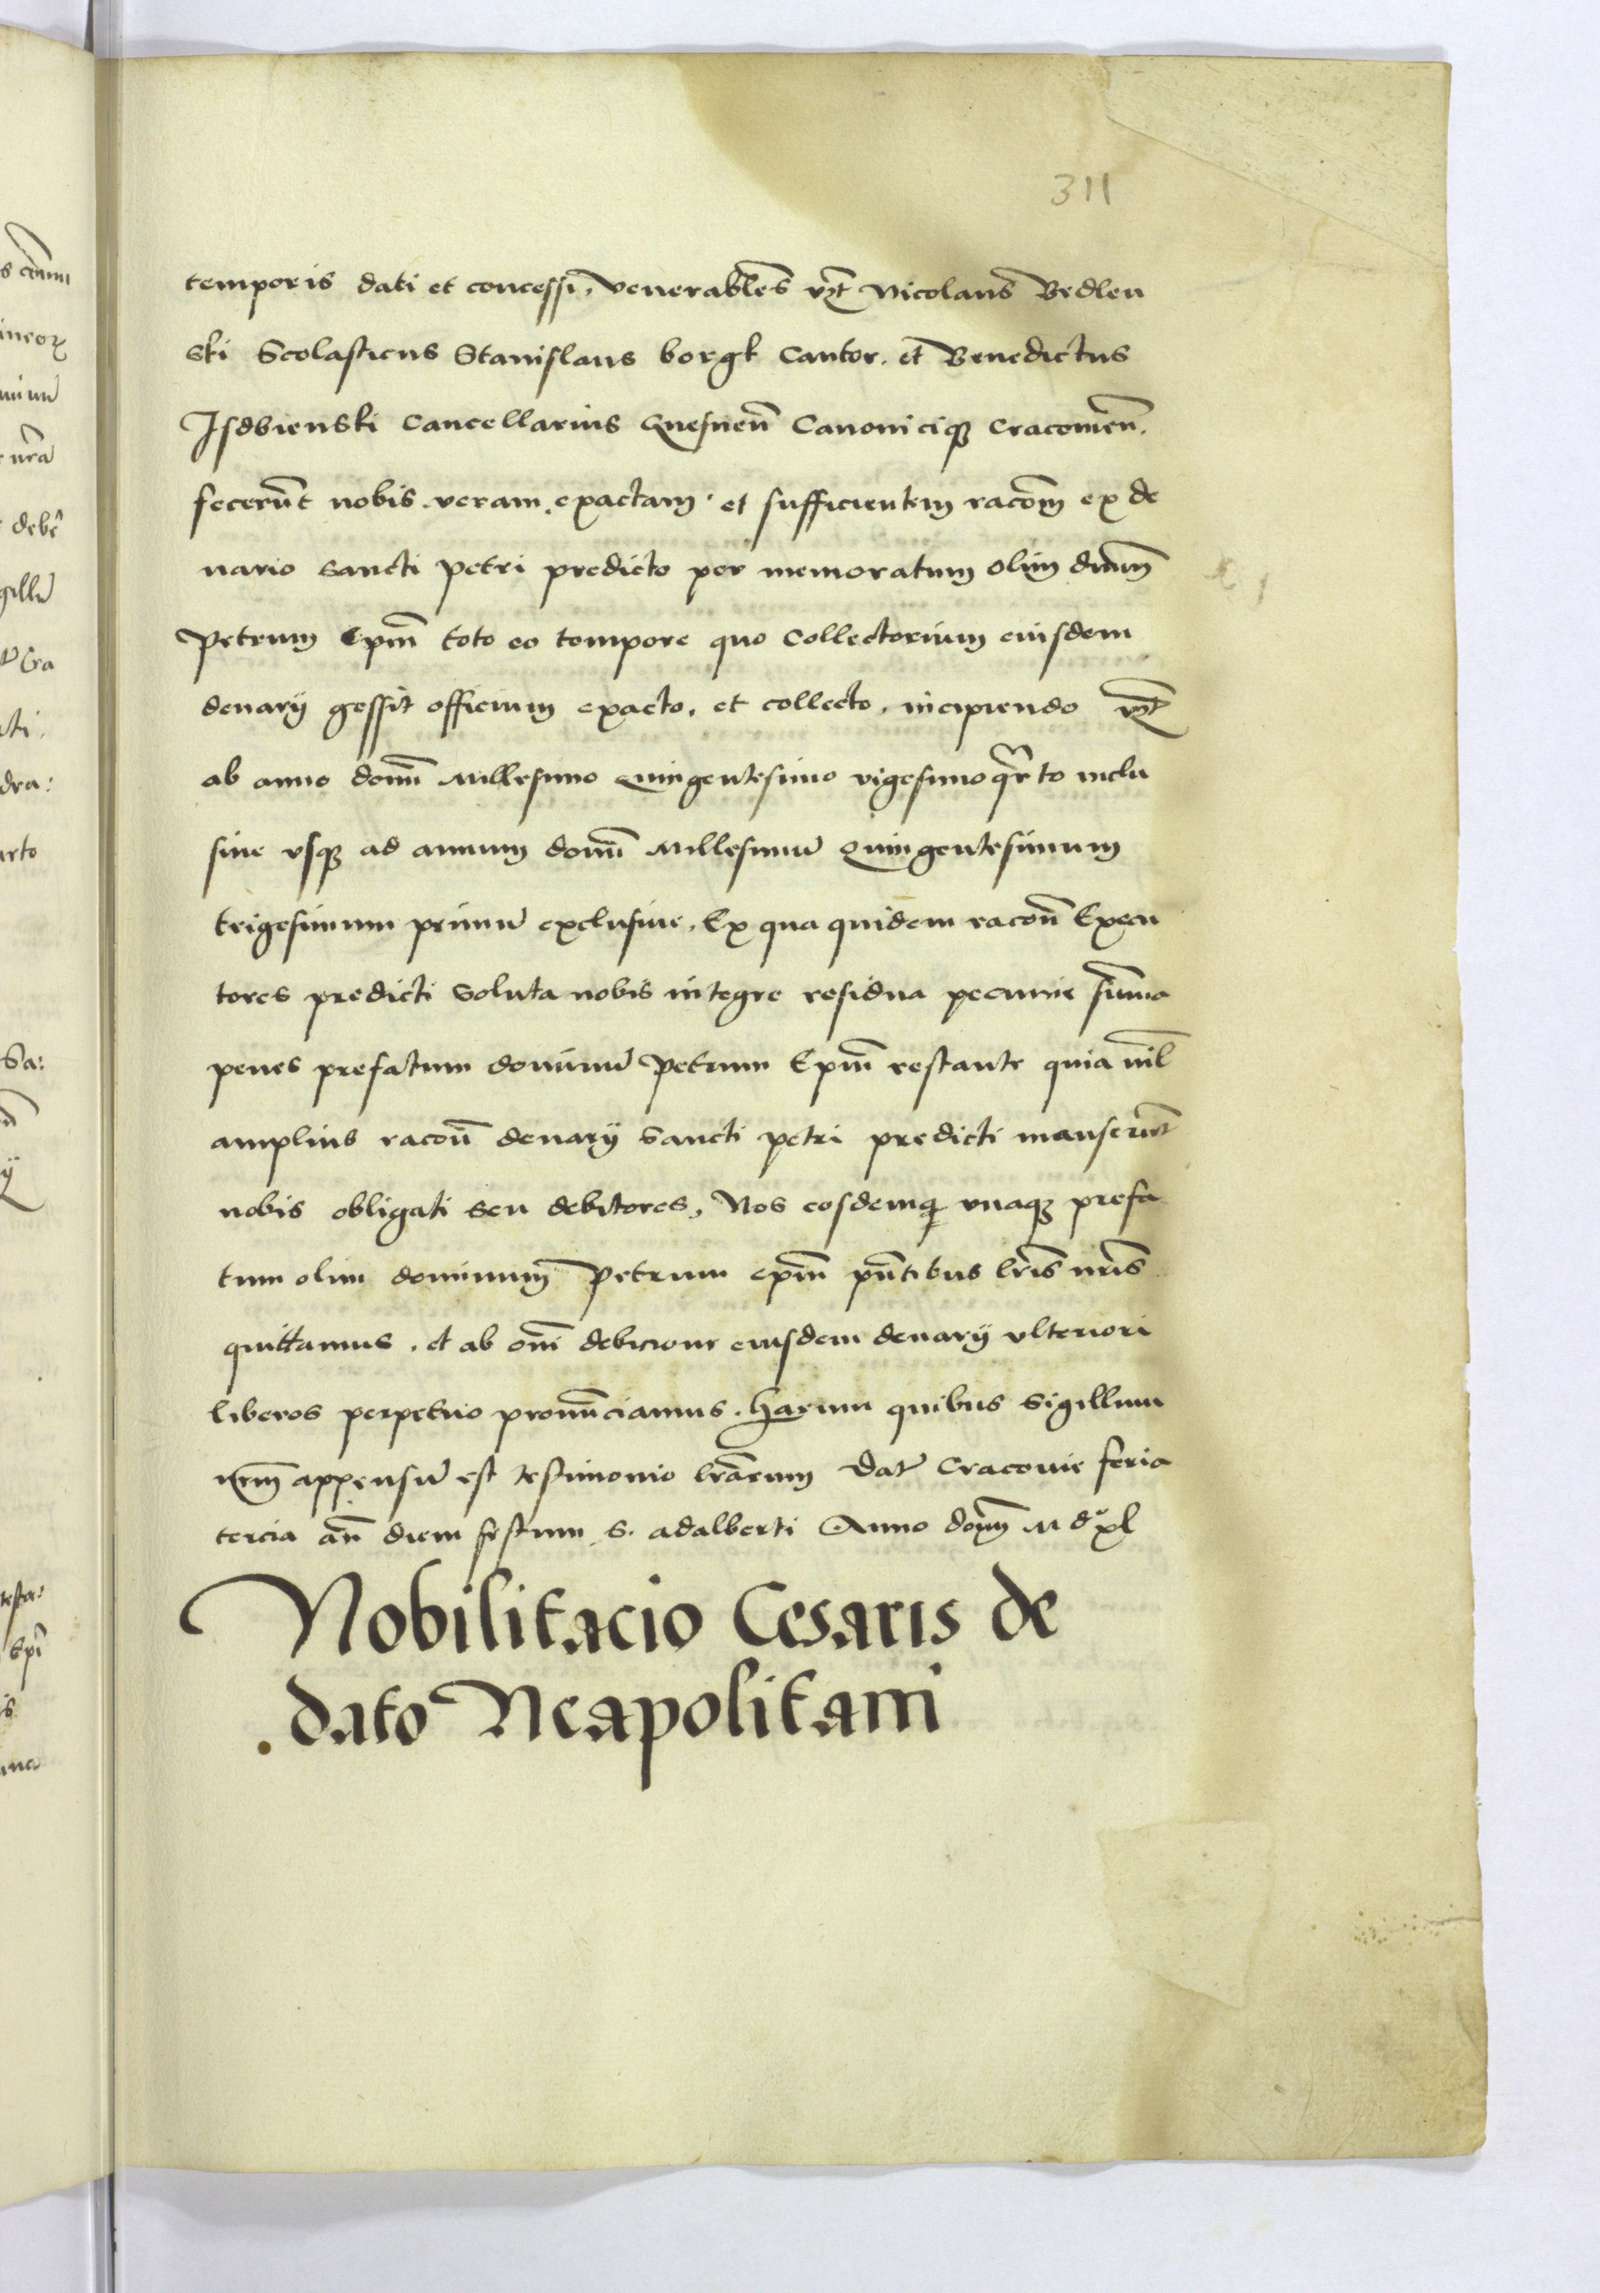 311
temporis dati et concessi, Venerables vʒt Nicolaus Bedlen
ski Scolasticus Stanislaus borgk Cantor. et Benedictus
Isdbienski Cancellarius Gnesnen̄ Canonicique Cracovien̄.
fecerūt nobis veram exactam et sufficientem racōm ex de
nario sancti petri predicto per memoratum olim dnūm
Petrum Ep̄m toto eo tempore quo Collectorium eiusdem
denarij gessit officium exacto, et collecto, incipiendo vʒt
ab anno domī Millesimo Quingentesimo vigesimo qʳrto inclu
sive vsque ad annum domī Millesimū Quingentesimum
trigesimum primū exclusive. Ex qua quidem racoñ Execu
tores predicti soluta nobis integre residua pecunie sūma
penes prefatum dominū Petrum Ep̄m restante quia nīl
amplius racoñ denarij sancti petri predicti manserūt
nobis obligati seu debitores, Nos eosdemque vnaque prefa
tum olim dominum Petrum ep̄m pn̄tibus lr̄is nr̄is
quittamus. et ab om̄i debicione eiusdem denarij vlteriori
liberos perpetuo pronūnciamus. Harum quibus sigillum
nr̄m appensū est testimonio lrārum Dat̄ Cracovie feria
tercia añ diem festum s. adalberti Anno dom̄ M dº xl
Nobilitacio Cesaris de
dato Neapolitani